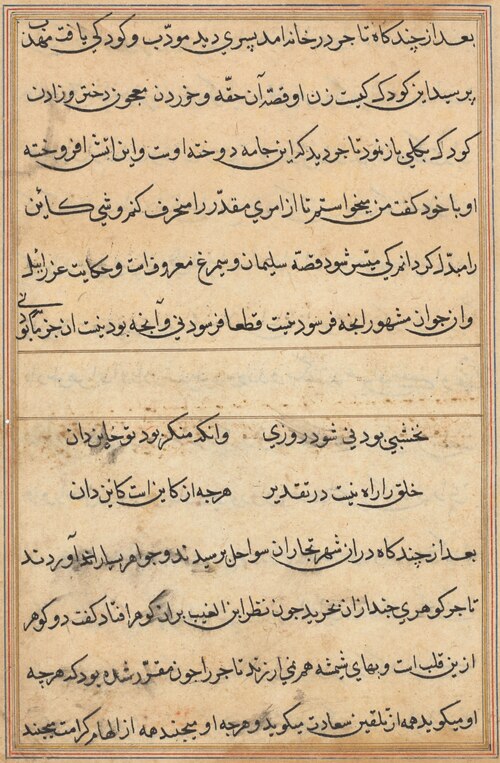 بعد از چند کاه تاجر در خانه امد پسری دید مودّب و کودکی یافت مهذّب
پرسید این کودک کیست زن او قصّهٔ آن حقّه و خوردن معجون دختر و زادن
کودک بکلی باز نمود تاجر دید که این جامه دوخته اوست و این اتش افروخته
او با خود کفت من میخواستم تا از امری مقدّر را منحرف کنم و شی کاین
را مبدّل کردانم کی میسّر شود قصّه سلیمان و سیمرغ معروفست و حکایت عزرائیل
و ان جوان مشهور انجه فرسودنیست قطعا فرسودنی و آنجه بودنیست ان جزما بودنی
نخشبی بودنی شود روزی وانکه منکر بود تو خاین دان
خلق را راه نیست در تقدیر هرجه از کاین است کاین دان
بعد از چند کاه در ان شهر تجاران سواحل برسیدند و جواهر بسیار آوردند
تاجر کوهری چند ازان بخرید جون نظر ابن الغیب بران کوهر افتاد کفت دو کوهر
ازین قلب است و بهای شیشه هم نمی ارزند تاجر را جون مقرّر شده بود که هرجه
او میکوید همه از تلقین سعادت میکوید و هرجه او میسنجد همه از الهام کرامت میسنجد